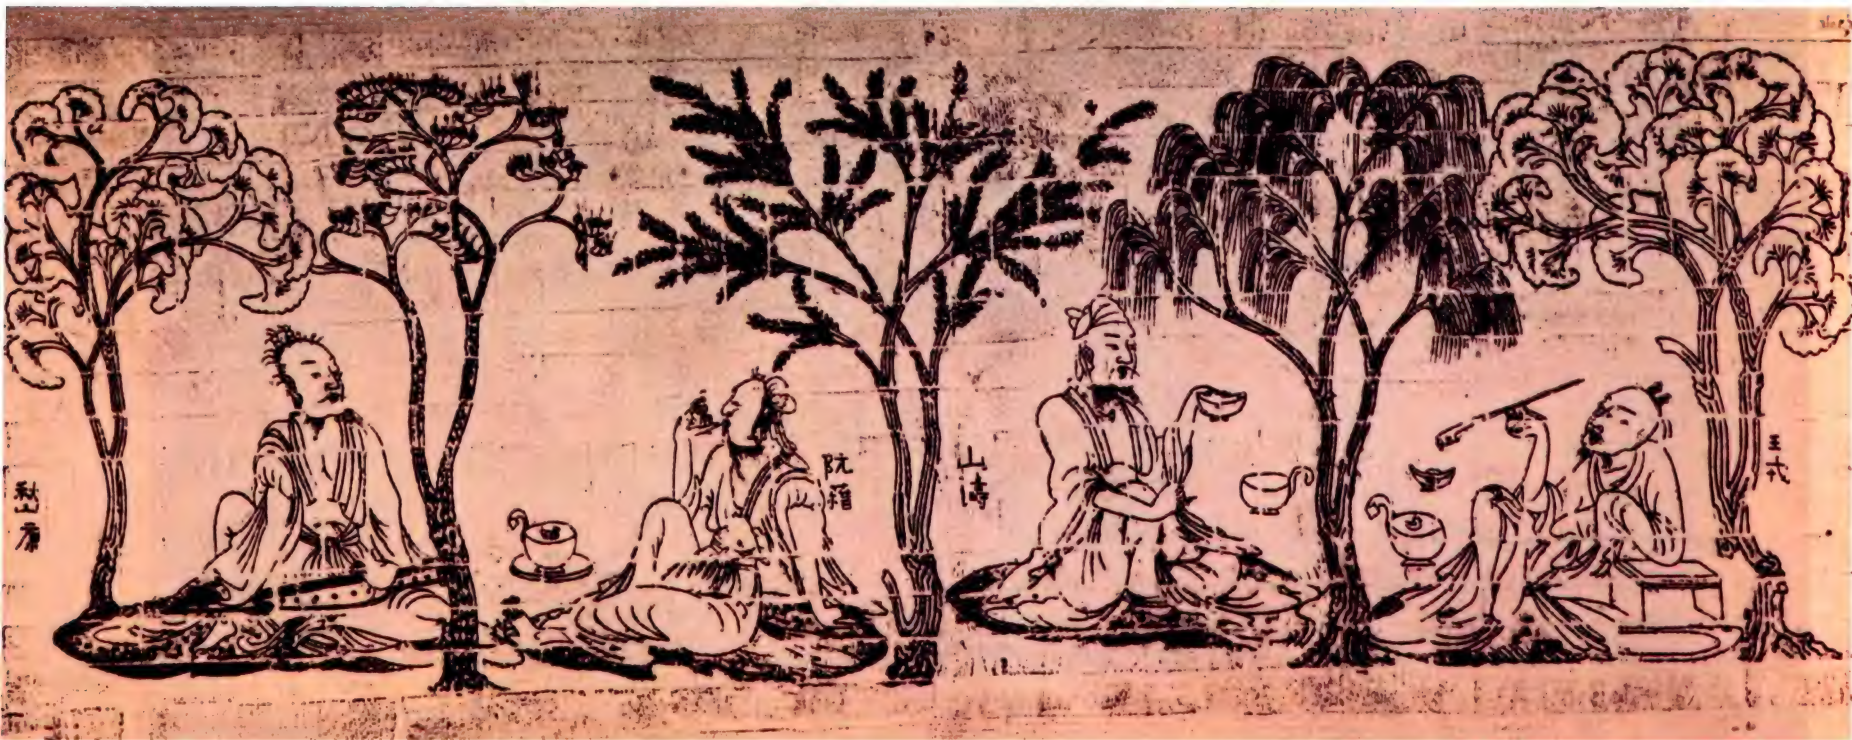 嵇康
阮籍
山濤
王戎